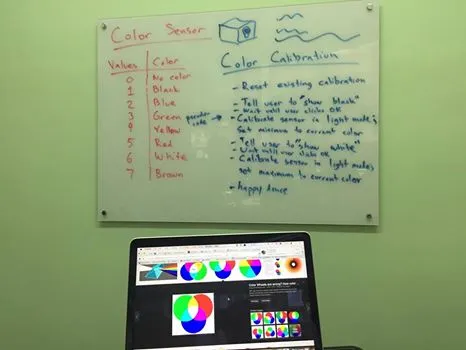 Color Sensor
Values Color
0 No color
1 Black
2 Blue
3 Green
4 Yellow
5 Red
6 White
7 Brown
pseudo-
code
Color Calibration
- Reset existing calibration
- Tell user to "show black"
- Wait until user clicks OK
- Calibrate sensor in light mode,
set minimum to current color
- Tell user to "show white"
- Wait until user clicks OK
- Calibrate sensor in light mode,
set maximum to current color
- happy dance
Color Wheels are wrong? How color